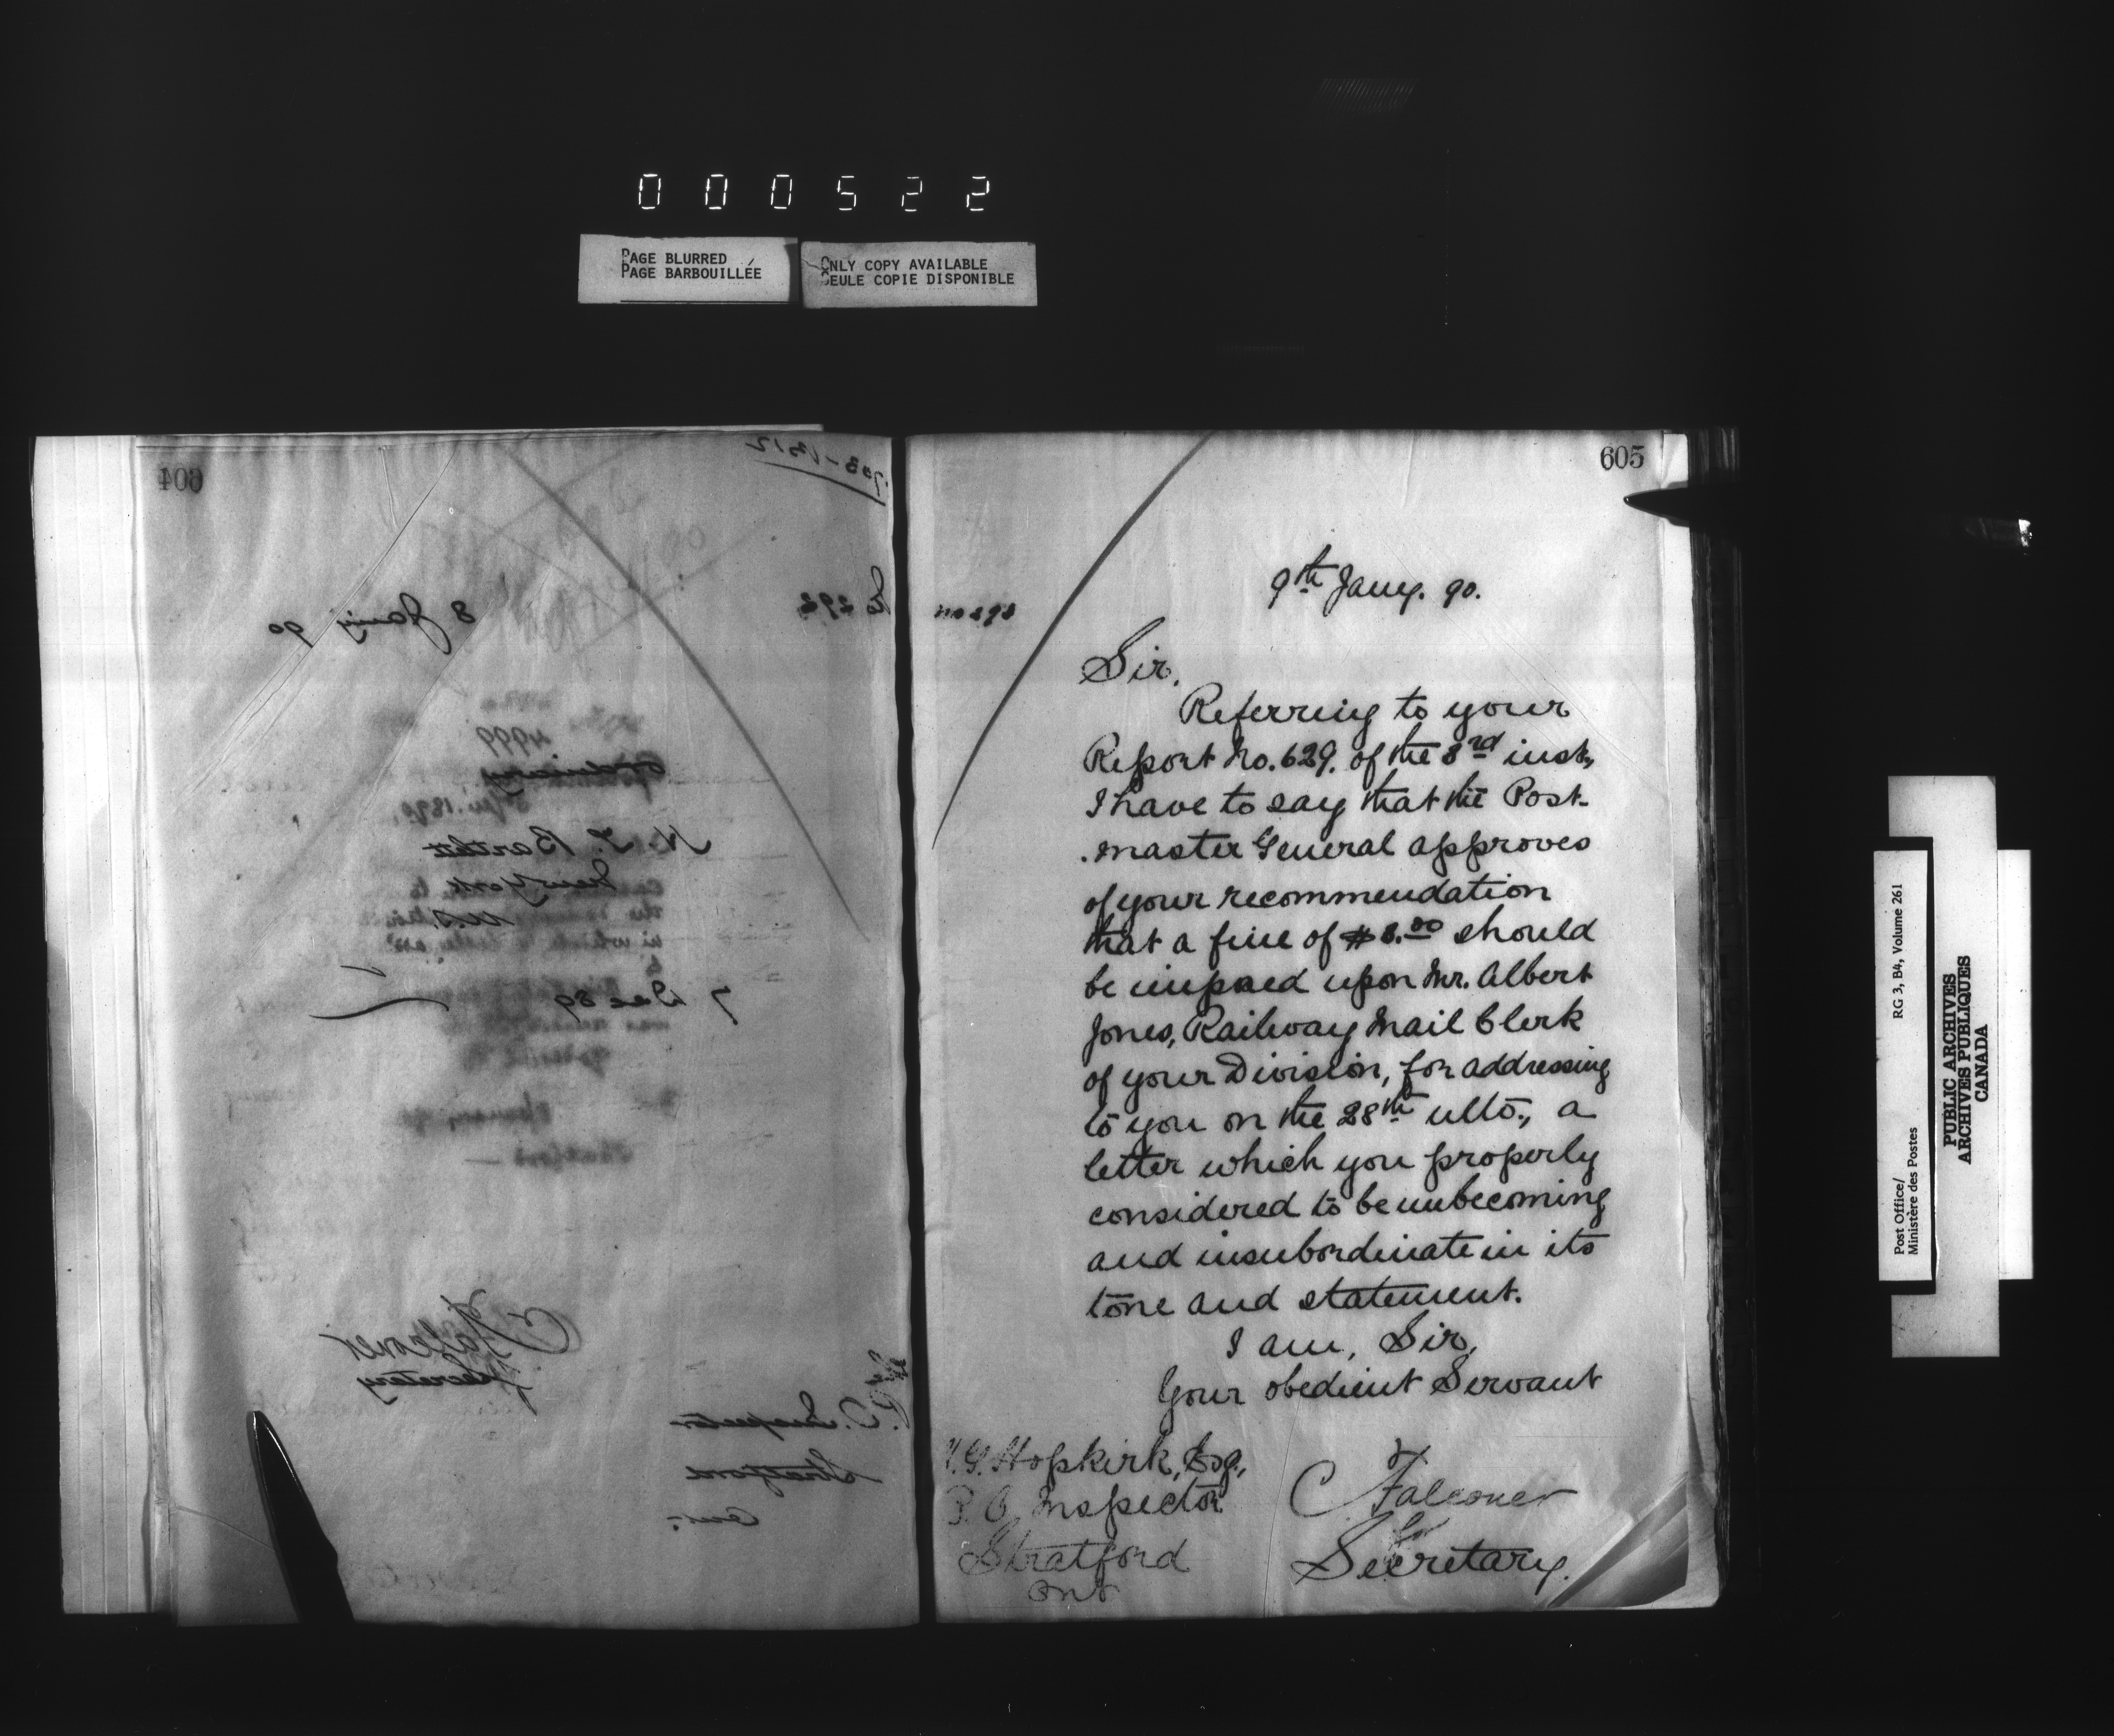 000522
PAGE BLURRED
PAGE BARBOUILLÉE
ONLY COPY AVAILABLE
SEULE COPIE DISPONIBLE
604
No 292
8 Jany 90
4999
N. T. Bartlett
New York
U.S.
7 Dec 89
C Falconer
Secretary
P.O. Inspector
Stratford
Ont.
605
no 293
9th Jany. 90.
Sir,
Referring to your
Report No. 629. of the 3rd inst,
I have to say that the Post-
.master General approves
of your recommendation
that a fine of $3.00 should
be imposed upon Mr. Albert
Jones, Railway Mail Clerk
of your Division, for addressing
to you on the 28th ulto., a
letter which you properly
considered to be unbecoming
and insubordinate in its
tone and statement.
I am, Sir,
Your obedient Servant
C Falconer
Secretary.
H.G. Hopkirk, Esq.,
P. O. Inspector
Stratford
Ont
Post Office/
Ministère des Postes
RG 3, B4, Volume 261
PUBLIC ARCHIVES
ARCHIVES PUBLIQUES
CANADA